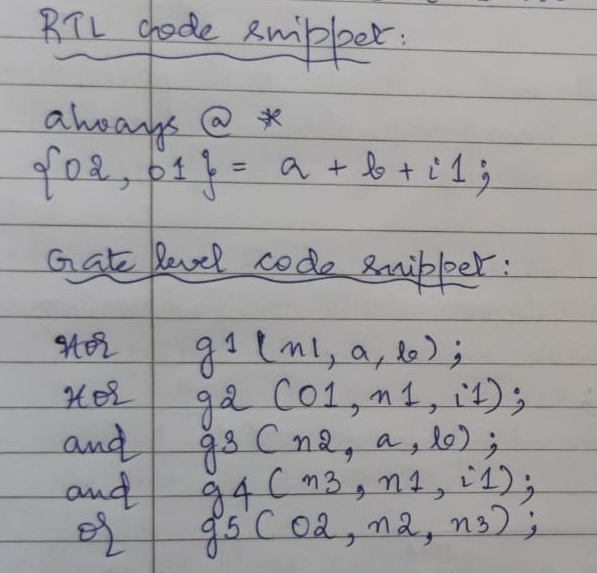 RTL code snippet:
always @ *
{o2, o1} = a + b + i1;
Gate level code snippet:
xor g1 (n1, a, b);
xor g2 (o1, n1, i1);
and g3 (n2, a, b);
and g4 (n3, n1, i1);
or g5 (o2, n2, n3);